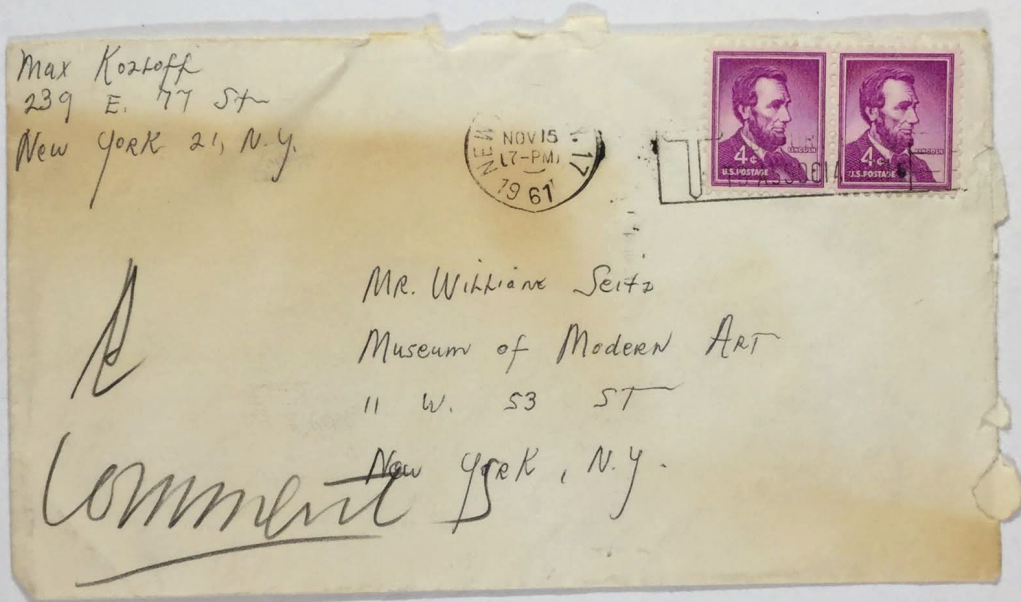 Max Kozloff
239 E. 77 St
New York 21, N.Y.
NEW
NOV 15
17-PM
1961
17
LINCOLN
4¢
U.S. POSTAGE
LINCOLN
4¢
U.S. POSTAGE
Mr. William Seitz
Museum of Modern Art
11 W. 53 ST
New York, N.Y.
Comment